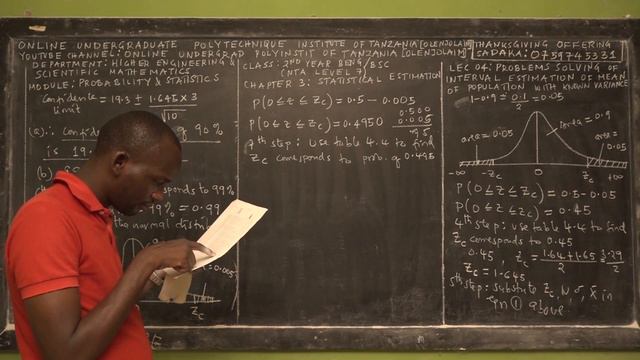 ONLINE UNDERGRADUATE POLYTECHNIQUE INSTITUTE OF TANZANIA [OLENJOLAI]
YOUTUBE CHANNEL: ONLINE UNDERGRAD POLYINSTIT OF TANZANIA [OLENJOLAI]
DEPARTMENT: HIGHER ENGINEERING &
SCIENTIFIC MATHEMATICS
MODULE: PROBABILITY & STATISTICS
Confidence = 19.3 ± 1.645 x 3
limit √10
(a).: Confid of 90%
is 19.
(b)
(c) responds to 99%
99% = 0.99
the normal distrib
0.005
Zc
CLASS: 2ND YEAR BENG/BSC
(NTA LEVEL 7)
CHAPTER 3: STATISTICAL ESTIMATION
P(0≤Z≤Zc) = 0.5 - 0.005
0.500
0.005
P(0≤Z≤Zc) = 0.4950
4th step: use table 4.4 to find
Zc corresponds to prob. of 0.495
THANKSGIVING OFFERING
SADAKA: 0759745331
LEC 04: PROBLEMS SOLVING OF
INTERVAL ESTIMATION OF MEAN
OF POPULATION WITH KNOWN VARIANCE
1-0.9 = 0.1/2 = 0.05
area = 0.05
area = 0.9
area = 0.05
-∞ -Zc 0 Zc +∞
P(0≤Z≤Zc) = 0.5-0.05
P(0≤Z≤Zc) = 0.45
4th step: use table 4.4 to find
Zc corresponds to 0.45
0.45, Zc = 1.64+1.65/2 = 3.29/2
Zc = 1.645
5th step: substitute Zc, N, σ, x̄ in
eqn ① above